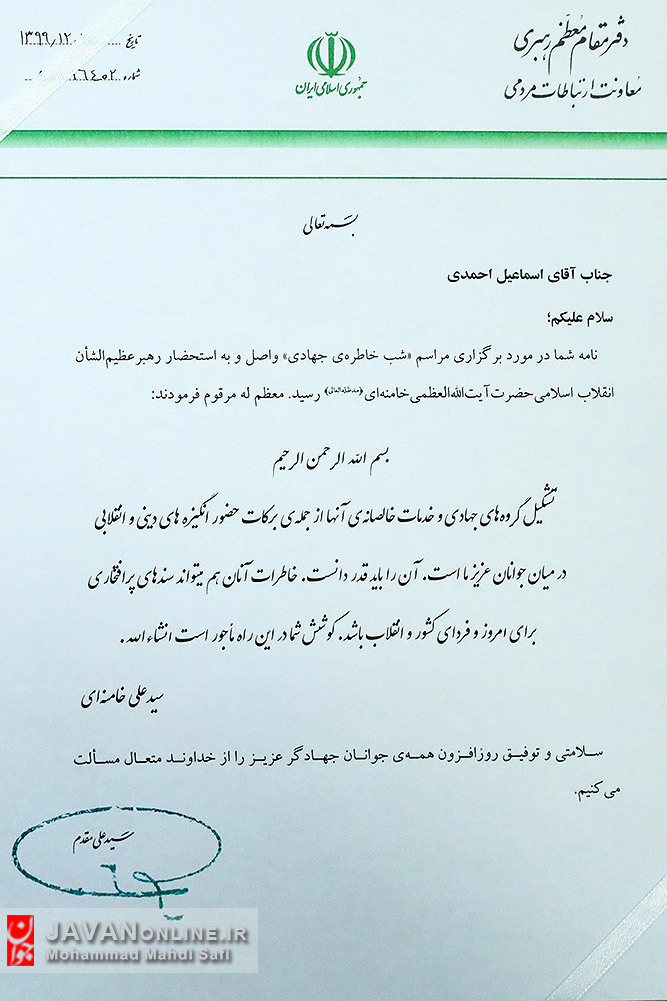 دفتر مقام معظم رهبری
معاونت ارتباطات مردمی
جمهوری اسلامی ایران
تاریخ ۱۳۹۹/۱۲/
شماره
بسمه‌تعالی
جناب آقای اسماعیل احمدی
سلام علیکم؛
نامه شما در مورد برگزاری مراسم «شب خاطره‌ی جهادی» واصل و به استحضار رهبر عظیم‌الشأن
انقلاب اسلامی حضرت آیت‌الله‌العظمی خامنه‌ای (مدظله‌العالی) رسید. معظم له مرقوم فرمودند:
بسم الله الرحمن الرحیم
تشکیل گروه‌های جهادی و خدمات خالصانه‌ی آنها از جمله‌ی برکات حضور انگیزه های دینی و انقلابی
در میان جوانان عزیز ما است. آن را باید قدر دانست. خاطرات آنان هم میتواند سندهای پرافتخاری
برای امروز و فردای کشور و انقلاب باشد. کوشش شما در این راه مأجور است انشاءالله.
سید علی خامنه‌ای
سلامتی و توفیق روزافزون همه‌ی جوانان جهادگر عزیز را از خداوند متعال مسألت
می‌کنیم.
سید علی مقدم
جوان
JAVANONLINE.IR
Mohammad Mahdi Safi